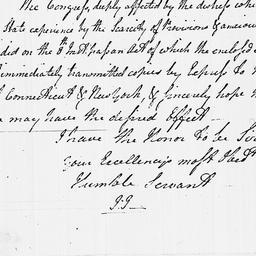 The Congress, deply affected by the distress which
State experience by the Scarcity of Provisions & anxious
did on the 7th Inst. pass an Act of which the enclosed
immediately transmitted copies by Express to
Connecticut & New York & Sincerely hope
may have the desired Effect —
I have the Honor to be Sir
your Excellency's most Obedt
Humble Servant
J.J—